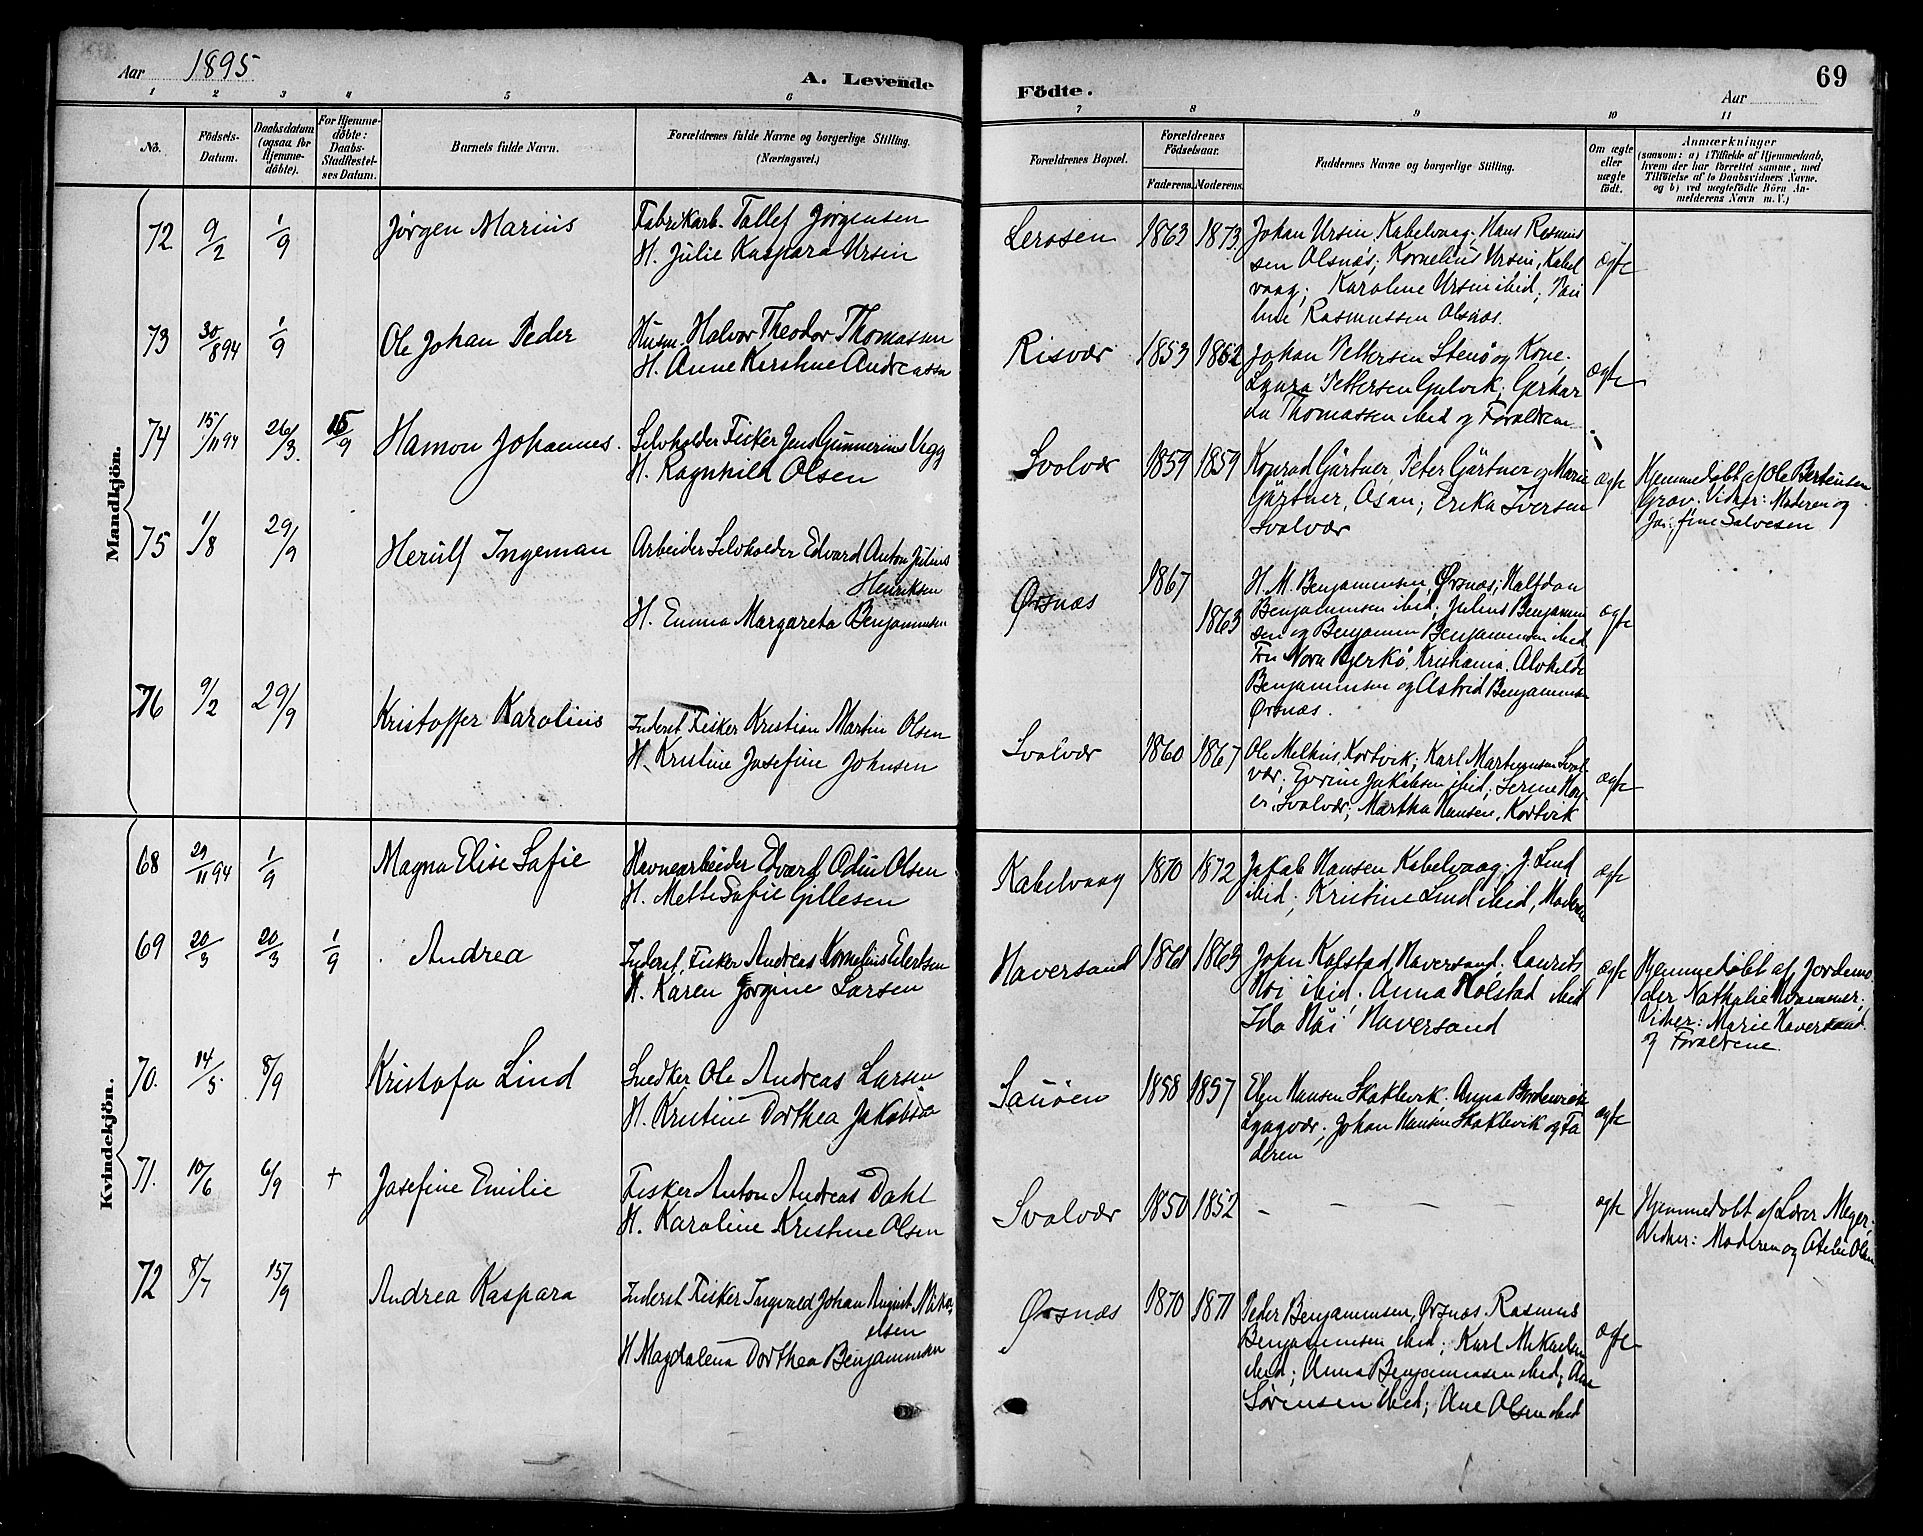 Aar 1895
A. Levende Födte.
69
Aar
1 2 3 4 5 6 7 8 9 10 11
No.
Födsels-Datum.
Daabsdatum (ogsaa for Hjemme-döbte).
For Hjemme-döbte: Daabs-Stadfestel-ses Datum.
Barnets fulde Navn.
Forældrenes fulde Navne og borgerlige Stilling. (Næringsvei.)
Forældrenes Bopæl.
Forældrenes Födselsaar.
Faderens. Moderens.
Faddernes Navne og borgerlige Stilling.
Om ægte eller uægte födt.
Anmærkninger
(saasom: a) i Tilfælde af Hjemmedaab,
hvem der har forrettet samme, med
Tilföielse af to Daabsvidners Navne.
og b) ved uægtefödte Börn An-
melderens Navn m. V.)
Mandkjön.
72 9/2 1/9 Jørgen Marius
Fabrikarb. Tallef Jørgensen
H. Julie Kaspara Ursin
Lerosen 1863 1873
Johan Ursin, Kabelvaag; Hans Rasmus
sen Olsnæs; Kornelius Ursin, Kabel
vaag; Karoline Ursin ibid; Pau
line Rasmussen Olsnæs.
ægte
73 30/8 94 1/9 Ole Johan Peder
Husm. Halvor Theodor Thomassen
H. Anne Kirstine Andreassen
Risvær 1853 1862
Johan Pettersen Stenø og Kone;
Laura Pettersen Gulvik; Gerhar
da Thomassen ibid og Forældrene
ægte
74 15/11 94 26/3 15/9 Hamon Johannes.
Selvholder Fisker Jens Gunnerius Vegg
H. Ragnhild Olsen
Svolvær 1859 1859
Konrad Gärtner, Peter Gärtner og Marie
Gärtner, Osan; Erika Iversen
Svolvær
ægte
Hjemmedøbt af Ole Berteusen
Grav. Vidner: Moderen og
Josefine Salvesen
75 1/8 29/9 Herulf Ingeman
Arbeider Selvholder Edvard Anton Julius
Henriksen
H. Emma Margareta Benjaminsen
Ørsnæs 1867 1863
H. M. Benjaminsen, Ørsnæs; Halfdan
Benjaminsen ibid; Julius Benjamin
sen og Benjamin Benjaminsen ibid
Fru Nora Bjerkö, Kristiania, Alvhilde
Benjaminsen og Astrid Benjaminsen
Ørsnæs.
ægte
76 9/2 29/9 Kristoffer Karolius
Inderst Fisker Kristian Martin Olsen
H. Kristine Josefine Johnsen
Svolvær 1860 1867
Ole Melkius, Kortvik; Karl Martinusen Svol
vær; Evrine Jakobsen ibid; Serine Hoy
er Svolvær; Martha Hansen, Kortvik
ægte
Kvindekjön.
68 29/11 94 1/9 Magna Elise Sofie
Havnearbeider Edvard Odin Olsen
H. Mette Sofie Gillesen
Kabelvaag 1870 1872
Jakob Hansen Kabelvaag; J. Lind
ibid; Kristine Lind ibid, Moderen
ægte
69 20/3 20/3 1/9 Andrea
Inderst, Fisker Andreas Kornelius Ebertsen
H. Karen Jørgine Larsen
Haversand 1861 1863
John Kolstad, Haversand; Laurits
Höi ibid; Anna Kolstad ibid
Ida Höi Haversand
ægte
Hjemmedøbt af Jordemo
der Nathalie Hammer;
Vidner: Marie Haversand
og Forældrene.
70. 14/5 8/9 Kristofa Lind
Snedker Ole Andreas Larsen
H. Kristine Dorthea Jakobsen
Sauøen 1858 1857
Elen Hansen Skaftevik. Anna
Johan Hansen Skaftevik og Fa
deren
ægte
71. 10/6 6/9 + Josefine Emilie
Fisker Anton Andreas Dahl
H. Karoline Kristine Olsen
Svolvær 1850 1852 — — — —
ægte
Hjemmedøbt af Lærer Meyer.
Vidner: Moderen og Olsen
72 8/7 15/9 Andrea Kaspara
Inderst Fisker Ingvald Johan August Mika
elsen
H. Magdalena Dorthea Benjaminsen
Ørsnæs 1870 1871
Peder Benjaminsen, Ørsnæs, Rasmus
Benjaminsen ibid; Karl Mikaelsen
ibid; Anna Benjaminsen ibid; Ane
Sörensen ibid; Ane Olsen ibid
ægte